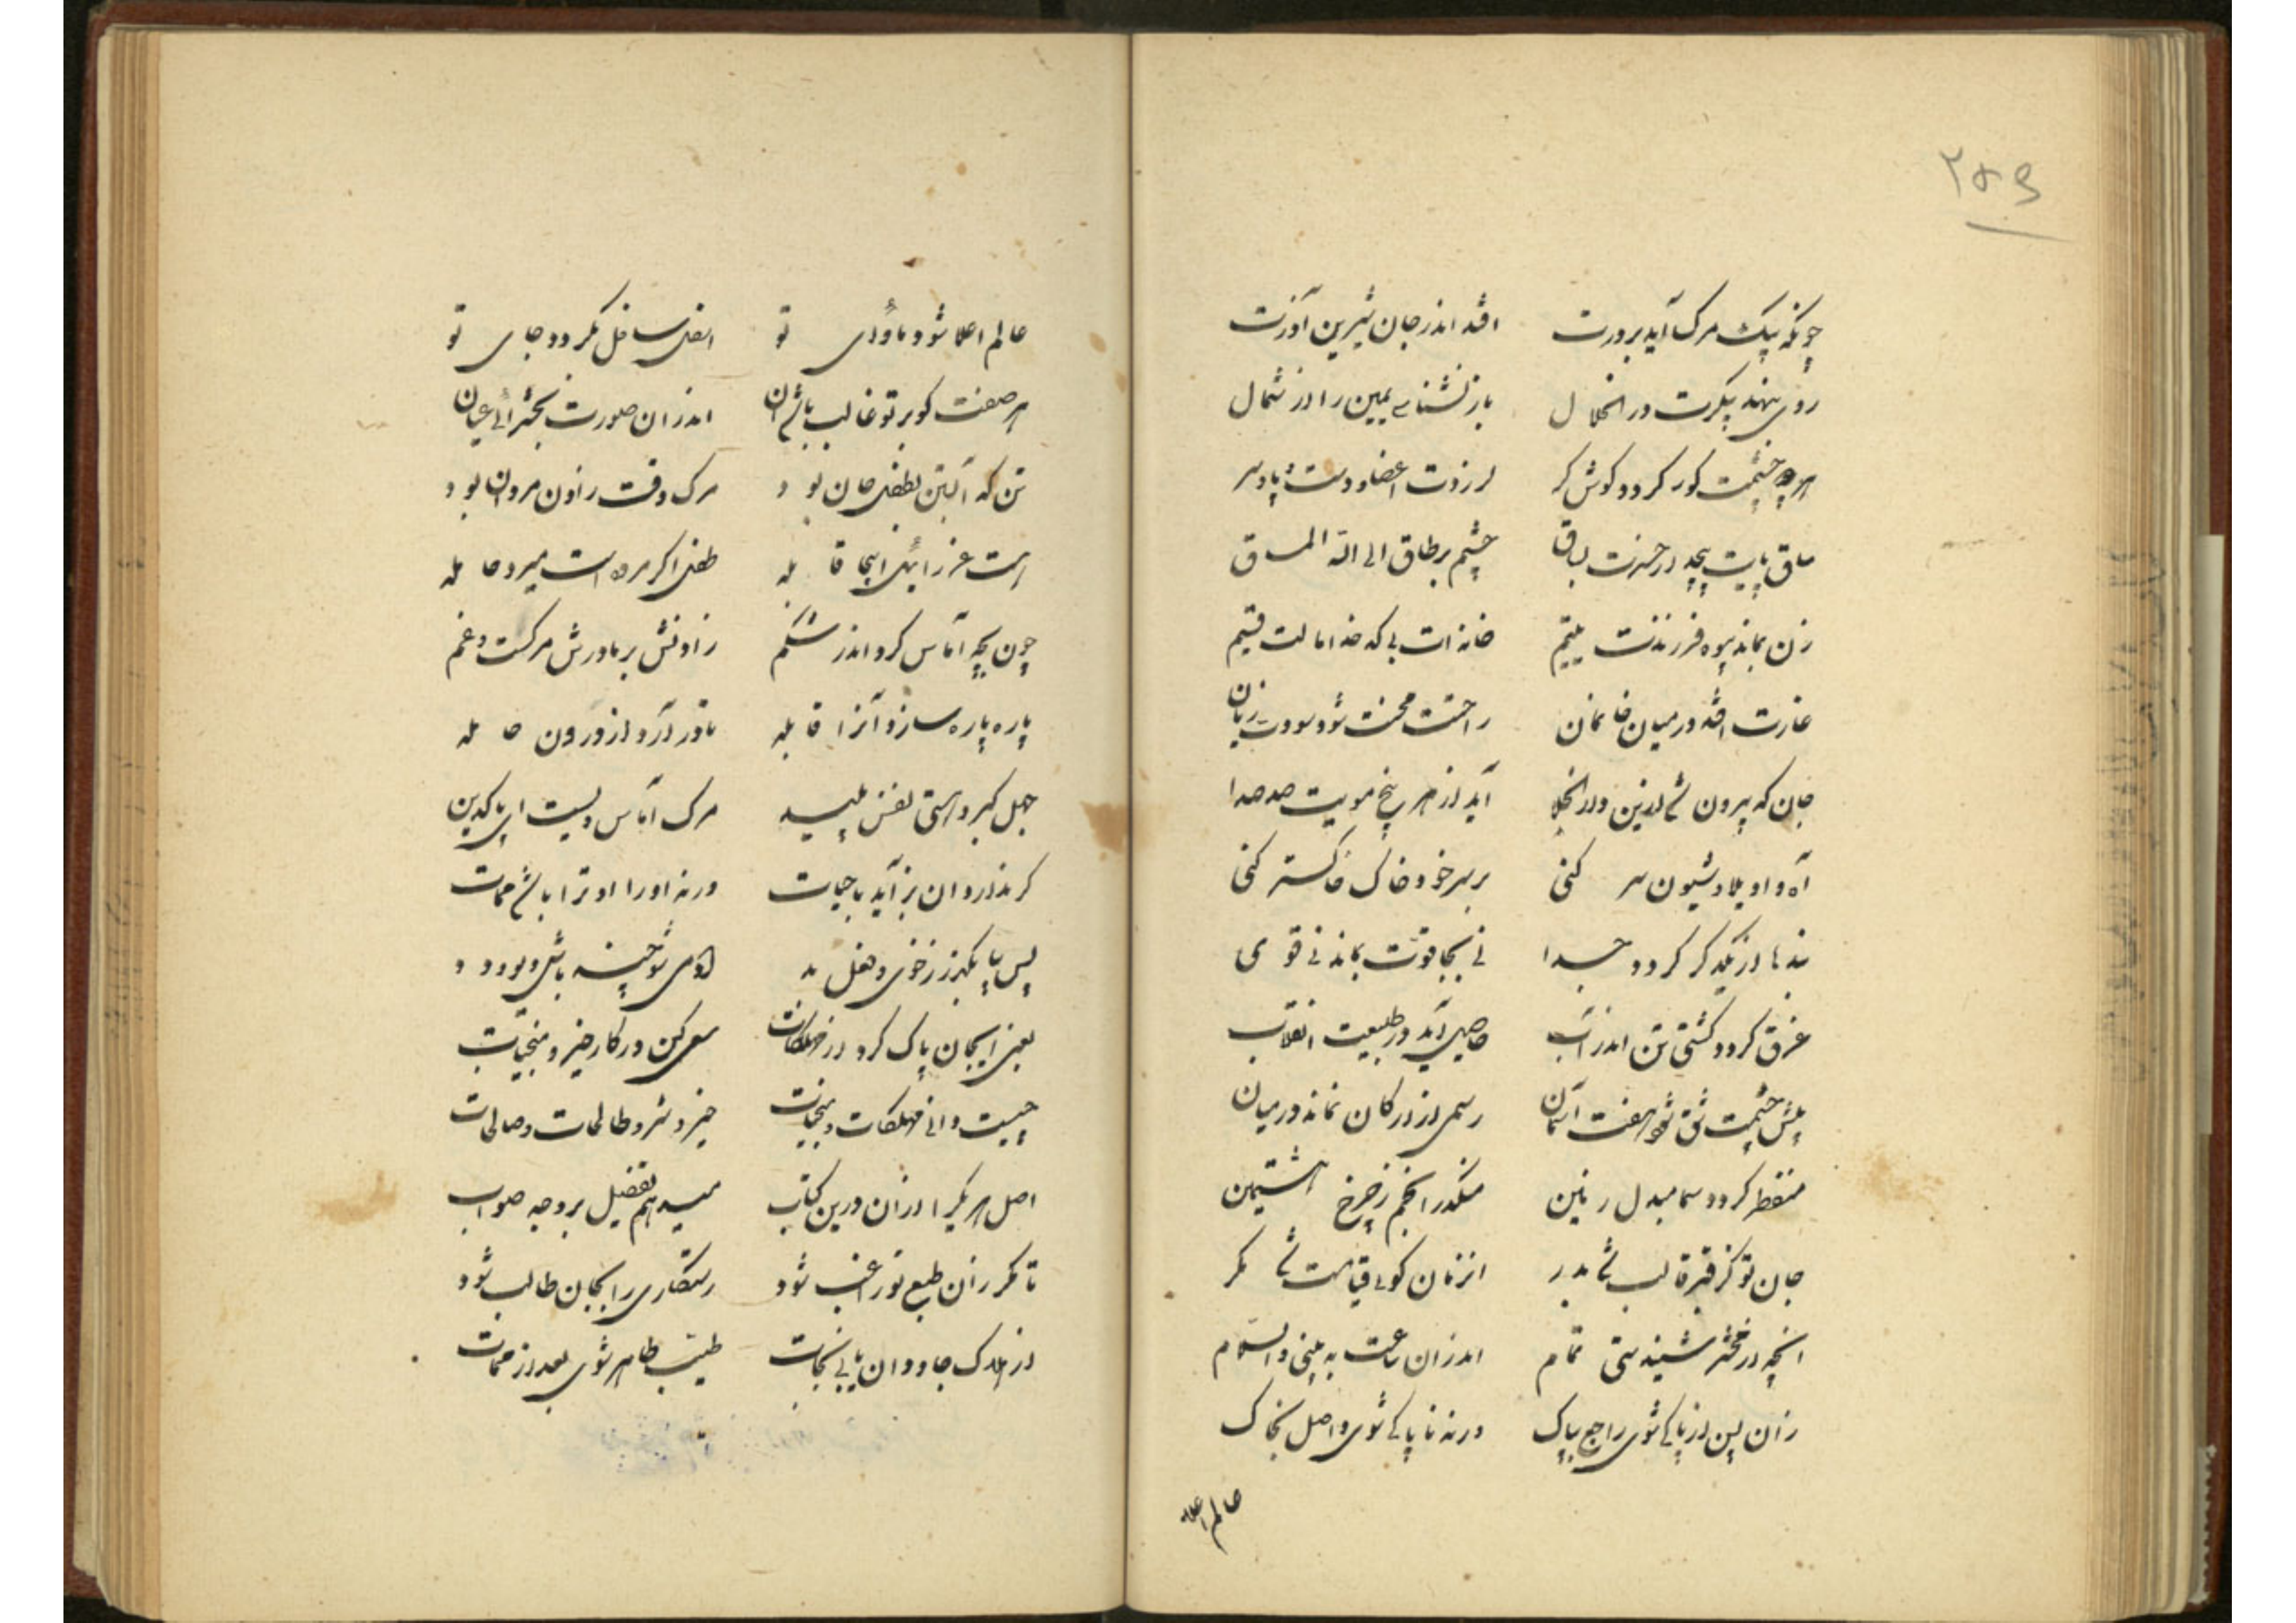 ۲۵۹
چونکه پیک مرک آید بر درت افتد اندر جان شیرین آذرت
روی بنهد پیکرت در انحلال باز نشناسی یمین را از شمال
هر دو چشمت کور کردد کوش کر لرزدت اعضا و دست و پا و سر
ساق پایت پیچد از حسرت بساق چشم بر طاق الی الله المساق
زن بماند بیوه فرزندت یتیم خانه ات بی کدخدا مالت قسیم
غارت افتد در میان خانمان راحتت محنت شود سودت زیان
جان که بیرون شد ازین دار الجلا آید از هر بیخ مویت صد صدا
آه و اویلا و شیون سر کنی بر سر خود خاک خاکستر کنی
بندها از یکدکر کردد جدا نی بجا قوت بماند نی قوی
غرق کردد کشتی تن اندر آب حاصل آید در طبیعت انقلاب
پیش چشمت شق شود هفت آسمان رسمی از ارکان نماند در میان
منفطر کردد سما مبدل زمین منکدر انجم ز چرخ هشتمین
جان تو کز قبر قالب شد بدر انزمان کوئی قیامت شد مکر
انچه در محشر شنیدستی تمام اندران ساعت به بینی والسلام
زان پس از پاکی شوی راجع بپاک ورنه ناپاکی شوی واصل بخاک
عالم اعلا
عالم اعلا شود ماوای تو اسفل سافل بکردد جای تو
هر صفت کو بر تو غالب باشد ان اندران صورت بحشر آئی عیان
تن که آبستن بطفل جان بود مرک وقت زادن مردان بود
هست عزرائیل اینجا قابله طفل اکر مرده است میرد حامله
چون بچه آماس کرد اندر شکم زادنش بر مادرش مرکست و غم
پاره پاره سازد آنرا قابله تا در آرد از درون حامله
جهل کبر و هستی نفس پلید مرک آماس ویست ای پاکدین
کر بذاردوان بر آید با حیات ورنه او را او ترا باشد ممات
پس بیا بکریز ز خوی و فعل بد آدمی شو چیند باشی دیو و دد
یعنی ایجان پاک کرد از مهلکات سعی کن در کار خیر و منجیات
چیست دانی مهلکات و منجیات خیر و شر و طالحات و صالحات
اصل هر یکرا ازان درین کتاب میدهم تفضیل بر وجه صواب
تا مکر زان طبع تو راغب شود رستکاری را بجان طالب شود
از هلاک جاودان یابی نجات طیب طاهر شوی بعد از ممات